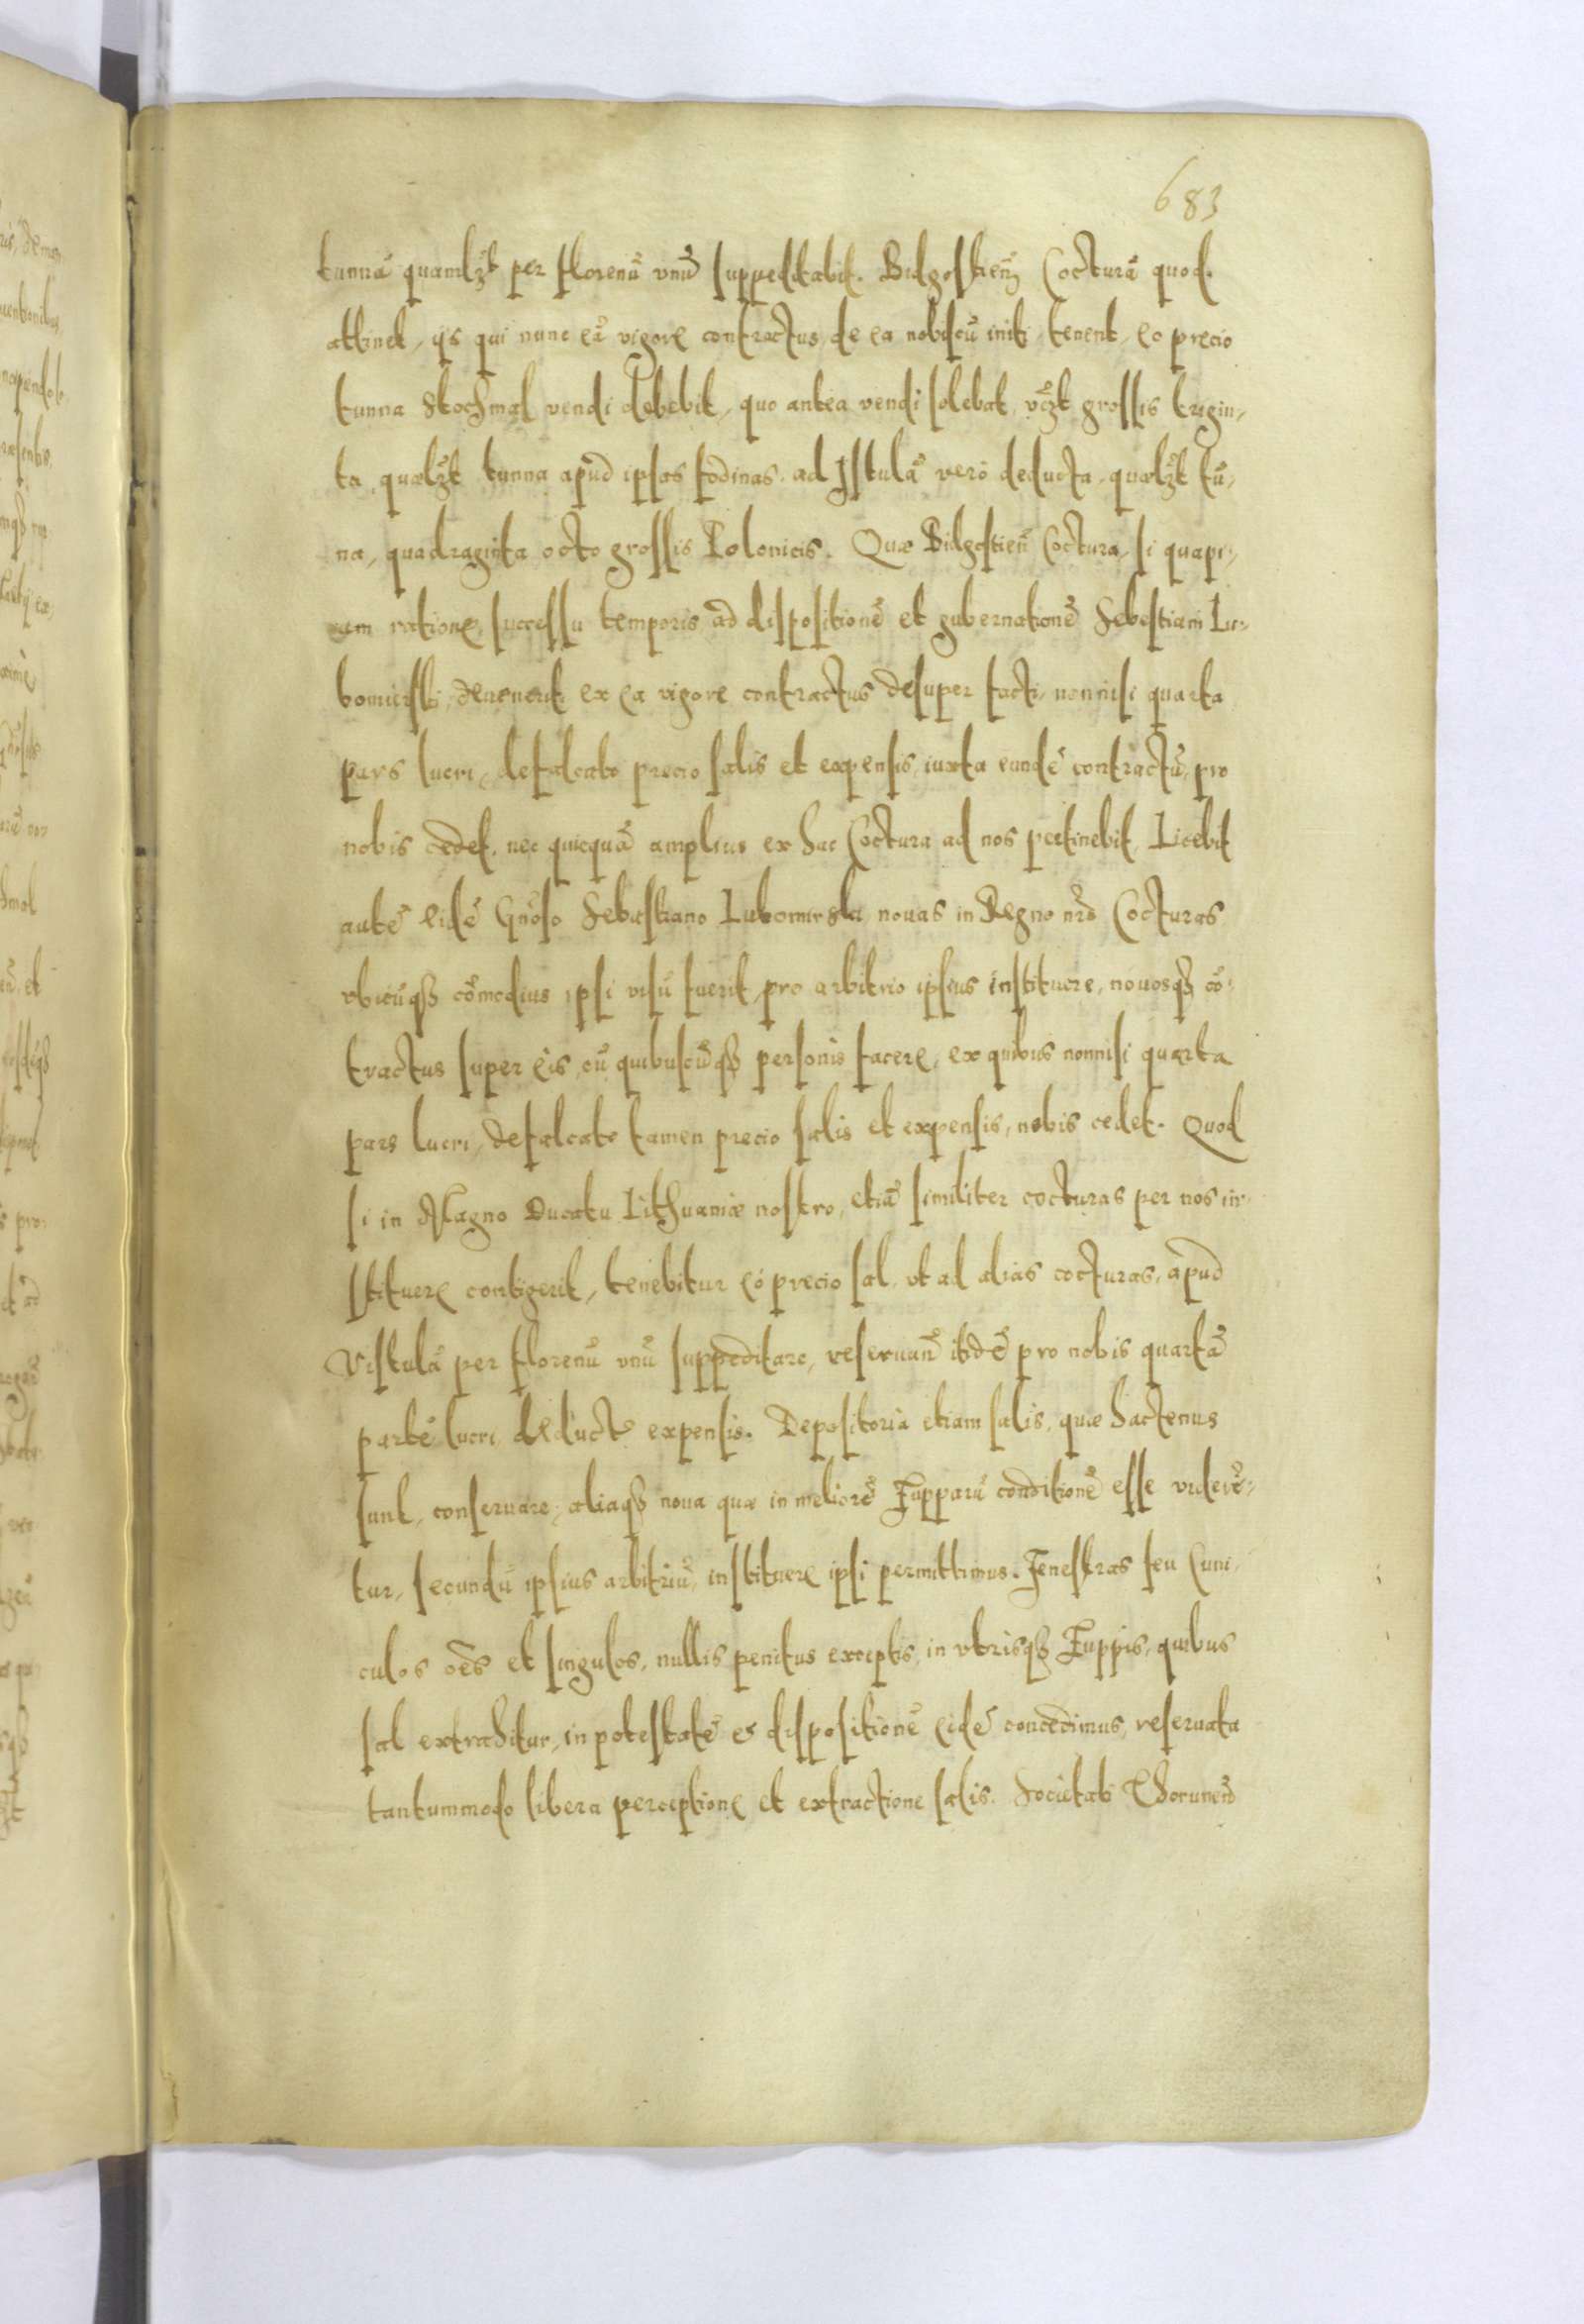 683
tunnã quamlzt per florenũ vnũ suppeditabit. Bidgostieñ Cocturã quod
attinet, ijs qui nunc eã vigore contractus de ea nobiscũ initi tenent, eo precio
tunna Stochmal vendi debebit, quo antea vendi solebat vczt grossis trigin-
ta, quælzt tunna apud ipsas fodinas, ad Istulã verò deducta, quælzt tũ-
na, quadraginta octo grossis Polonicis. Quæ Bidgostieñ Coctura, si quapi-
am ratione, successu temporis ad dispositionẽ et gubernationẽ Sebestiani Lu-
bomirski deuenerit ex ea vigore contractus desuper facti, nonnisi quarta
pars lucri, defalcato precio salis et expensis, iuxta eundẽ contractũ, pro
nobis cedet, nec quicquã amplius ex hac Coctura ad nos pertinebit. Licebit
autẽ eidẽ Gñoso Sebastiano Lubomirski nouas in Regno nr̃o Cocturas
vbicũqȝ cõmodius ipsi visũ fuerit, pro arbitrio ipsius instituere, nouosqȝ cõ-
tractus super eis, cũ quibuscũqȝ personis facere, ex quibus nonnisi quarta
pars lucri, defalcato tamen precio salis et expensis, nobis cedet. Quod
si in Magno Ducatu Lithuaniæ nostro, etiã similiter cocturas per nos in-
stituere contigerit, tenebitur eò precio sal, vt ad alias cocturas, apud
Vistulã per florenũ vnũ suppeditare, reseruañ ibidẽ pro nobis quartã
partẽ lucri deduct expensis. Depositoria etiam salis, quæ hactenus
sunt, conseruare, aliaqȝ noua quæ in meliorẽ Zupparũ conditionẽ esse viderẽ-
tur, secundũ ipsius arbitriũ, instituere ipsi permittimus. Fenestras seu Cuni-
culos oẽs et singulos, nullis penitus exceptis, in vtrisqȝ Zuppis, quibus
sal extrahitur, in potestatẽ et dispositionẽ eidẽ concedimus, reseruata
tantummodo libera perceptione et extractione salis. Societati Thoruneñ